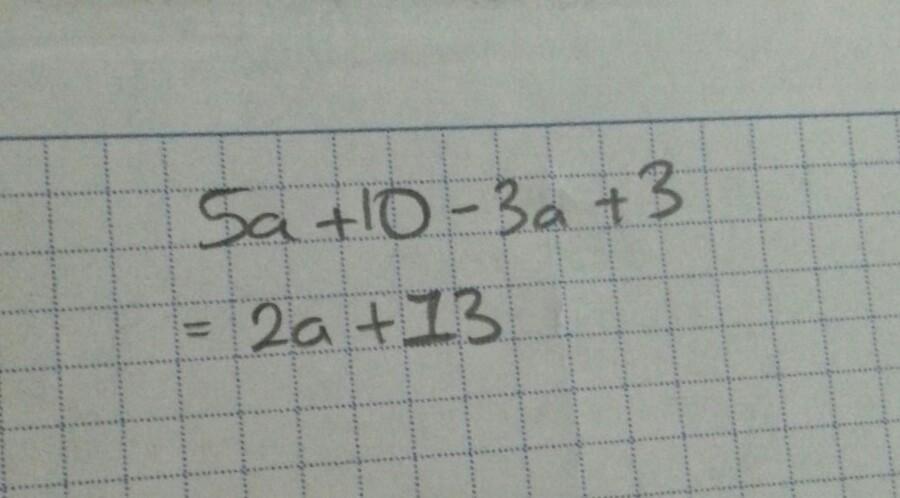 5a + 10 - 3a + 3
= 2a + 13